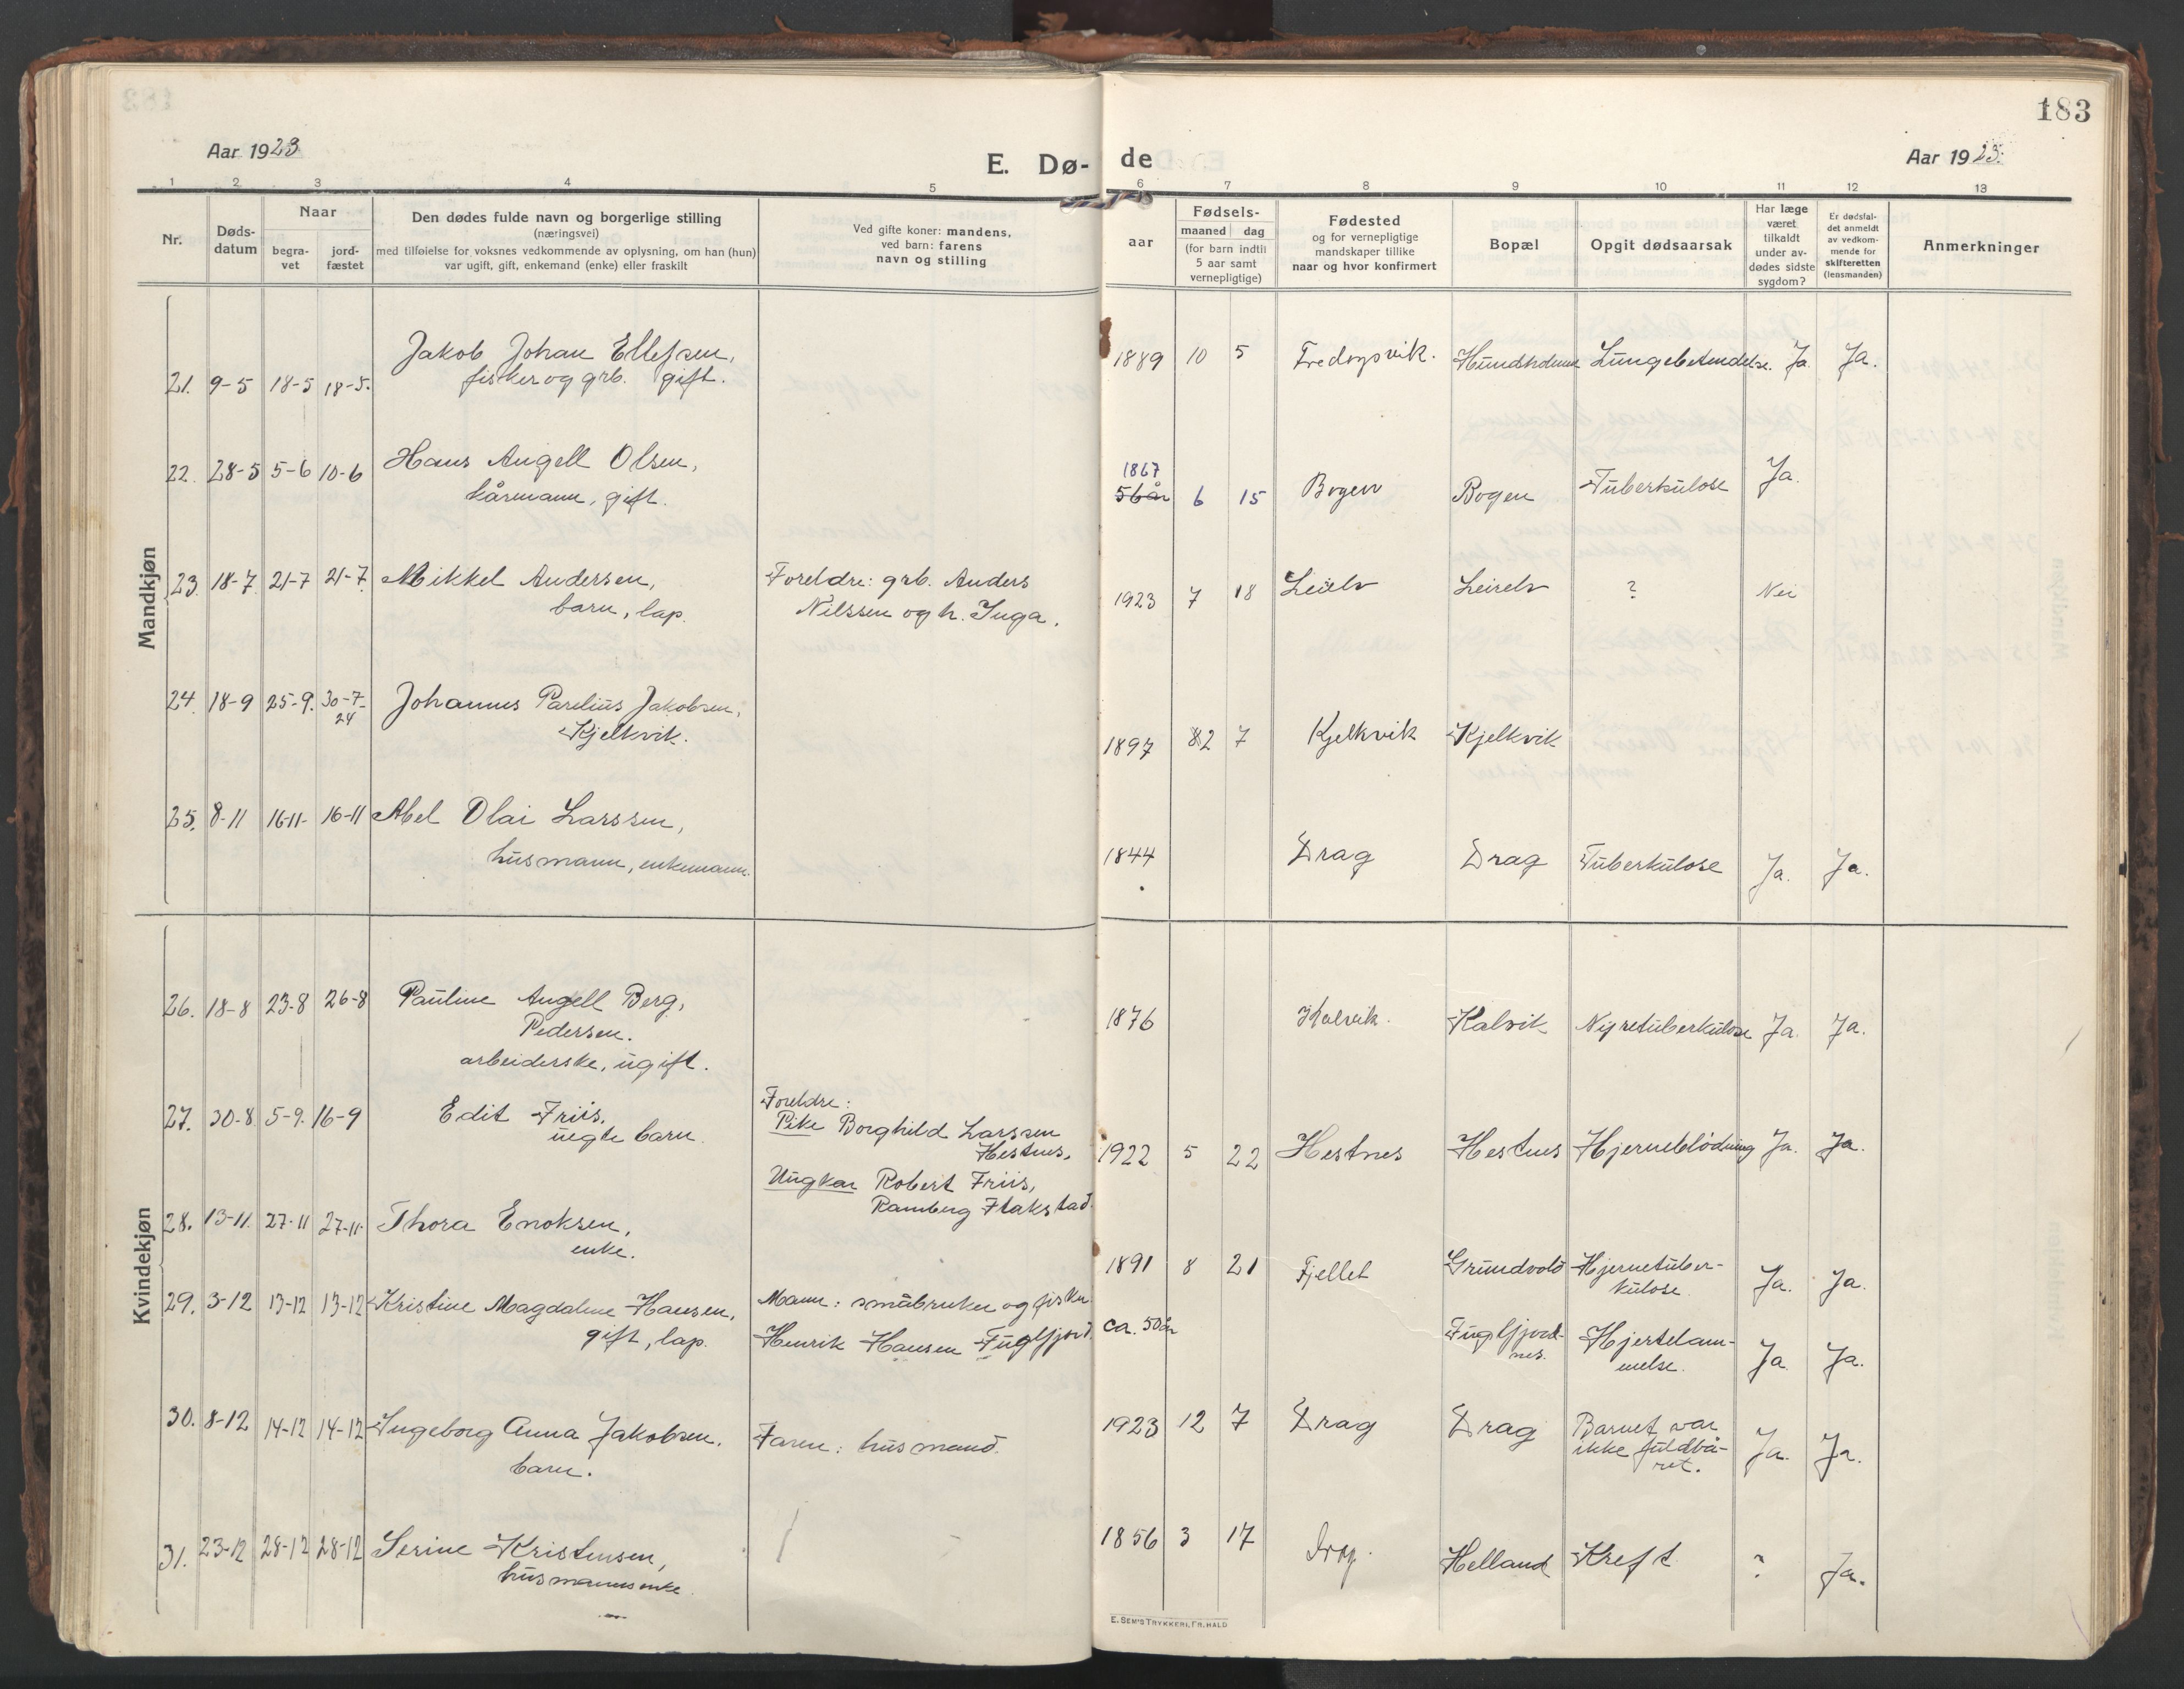 183
Aar 1923
E. Dø-
de
Aar 1923.
1 2 3 4 5 6 7 8 9 10 11 12 13
Nr.
Døds-
datum
Naar
begra-
vet
jord-
fæstet
Den dødes fulde navn og borgerlige stilling
(næringsvei)
med tilføielse for voksnes vedkommende av oplysning, om han (hun)
var ugift, gift, enkemand (enke) eller fraskilt
Ved gifte koner: mandens,
ved barn: farens
navn og stilling
aar
Fødsels-
maaned dag
(for barn indtil
5 aar samt
vernepligtige)
Fødested
og for vernepligtige
mandskaper tillike
naar og hvor konfirmert
Bopæl
Opgit dødsaarsak
Har læge
været
tilkaldt
under av-
dødes sidste
sygdom?
Er dødsfal-
det anmeldt
av vedkom-
mende for
skifteretten
(lensmanden)
Anmerkninger
Mandkjøn
Jakob Johan Ellefsen,
21. 9-5 18-5 18-5. fisker og grb. gift.
1889 10 5 Fredogsvik. Hundholmen Lungebetendelse. Ja. Ja.
22. 28-5 5-6 10-6 Hans Angell Olsen,
kårmann, gift.
1867
56 år 6 15 Bogen Bogen Tuberkulose Ja.
23. 18-7 21-7 21-7 Mikkel Andersen,
barn, lap.
Foreldre: grb. Anders
Nilssen og h. Inga.
1923 7 18 Leirelv Leirelv ? Nei
24. 18-9 25-9. 30-7-
24
Johannes Parelius Jakobsen,
Kjelkvik.
1897 2 7 Kjelkvik Kjelkvik
25. 8-11 16-11- 16-11 Abel Olai Larssen,
husmann, enkemann.
1844 Drag Drag Tuberkulose Ja. Ja.
Kvindekjøn
26. 18-8 23-8 26-8 Pauline Angell Berg,
Pedersen.
arbeiderske, ugift.
1876 Kalvik. Kalvik Nyretuberkulose Ja. Ja.
27. 30-8 5-9. 16-9 Edit Friis,
uegte barn.
Foreldre:
Pike Borghild Larssen
Hestnes,
Ungkar Robert Friis,
Ramberg Flakstad.
1922 5 22 Hestnes Hestnes Hjerneblødning Ja. Ja.
28. 13-11. 27-11 27-11- Thora Enoksen,
enke.
1891 8 21 Fjellet Grundvold Hjernetuber-
kulose. Ja. Ja.
29. 3-12 13-12 13-12 Kristine Magdalene Hansen,
gift, lap.
Mann: småbruker og fisker
Henrik Hansen Fuglfjord.
ca. 50 år Fuglfjord-
nes. Hjertelam-
melse. Ja. Ja.
30. 8-12 14-12 14-12 Ingeborg Anna Jakobsen,
barn.
Faren: husmand.
1923 12 7 Drag Drag Barnet var
ikke fuldbå-
ret. Ja. Ja.
31. 23-12 28-12 28-12 Serine Kristensen,
husmannsenke.
1856 3 17 Drag. Helland Kreft ? Ja.
E. SEM'S TRYKKERI, FR. HALD